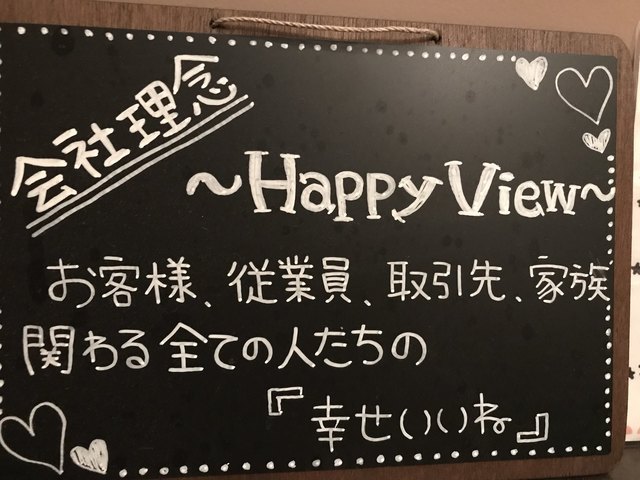 会社理念
~Happy View~
お客様、従業員、取引先、家族
関わる全ての人たちの
『幸せいいね』